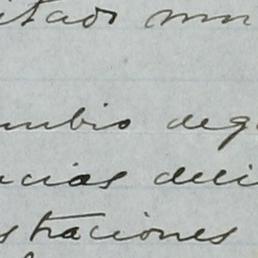 itado mu
umbio deg
ncias deci
straciones